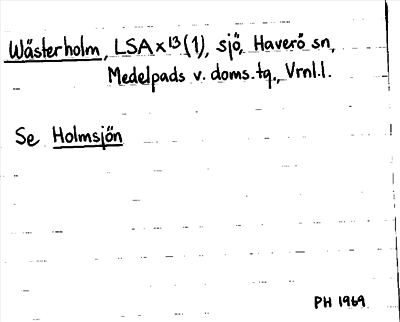 Wästerholm, LSA x 13 (1), sjö, Haverö sn,
Medelpads v. doms.tg., Vrnl.l.
Se Holmsjön
PH 1969